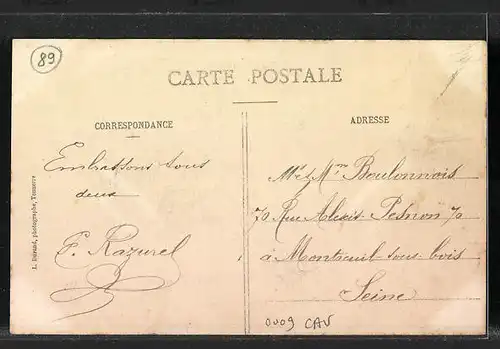 89
CARTE POSTALE
CORRESPONDANCE
ADRESSE
Embrassons tous
deux
F. Razurel
Mr et Mme Boulonnois
70 Rue Alexis Pesnon 70
à Montreuil-sous-bois
Seine
L. Durand, photographe, Tonnerre
0009 CAV